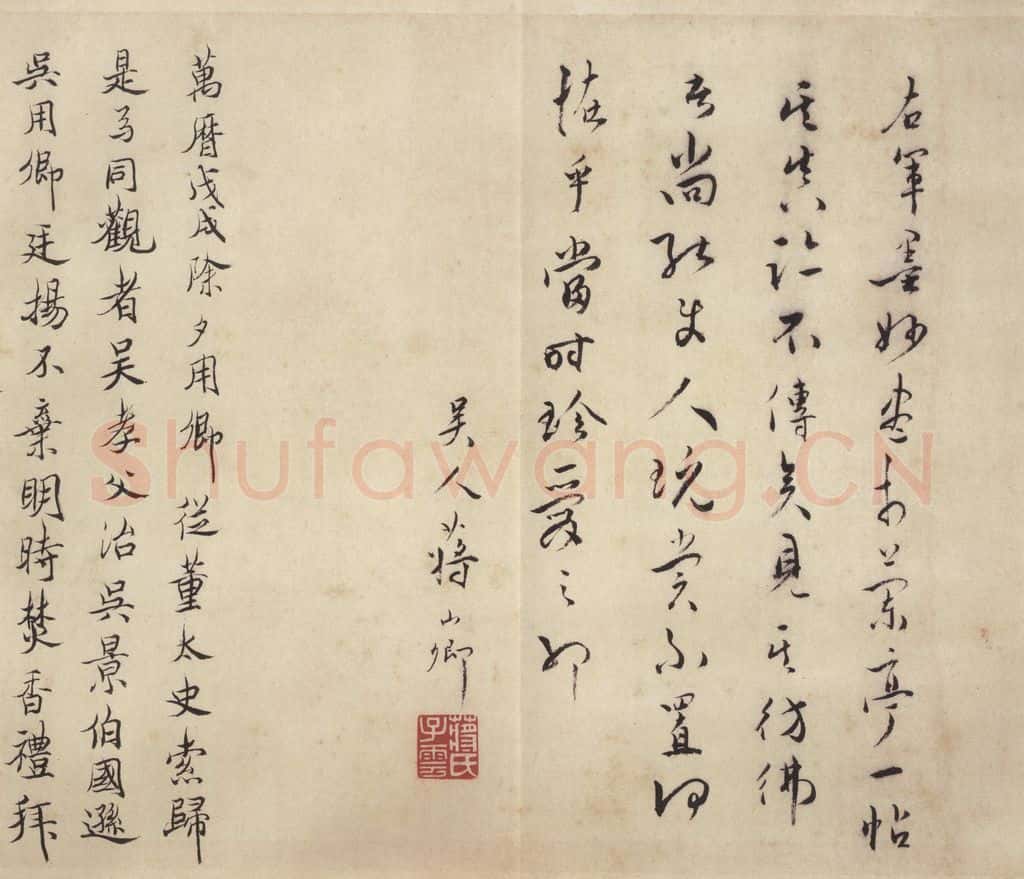 右軍墨妙盡於蘭亭一帖
其真跡不傳矣見其彷彿
者尚能使人玩賞不置何
怪乎當時珍愛之耶
吳人蔣山卿
蔣氏子雲
萬曆戊戌除夕用卿從董太史索歸
是日同觀者吳孝父治吳景伯國遜
吳用卿廷揚不棄明時焚香禮拜
Shufawang.CN